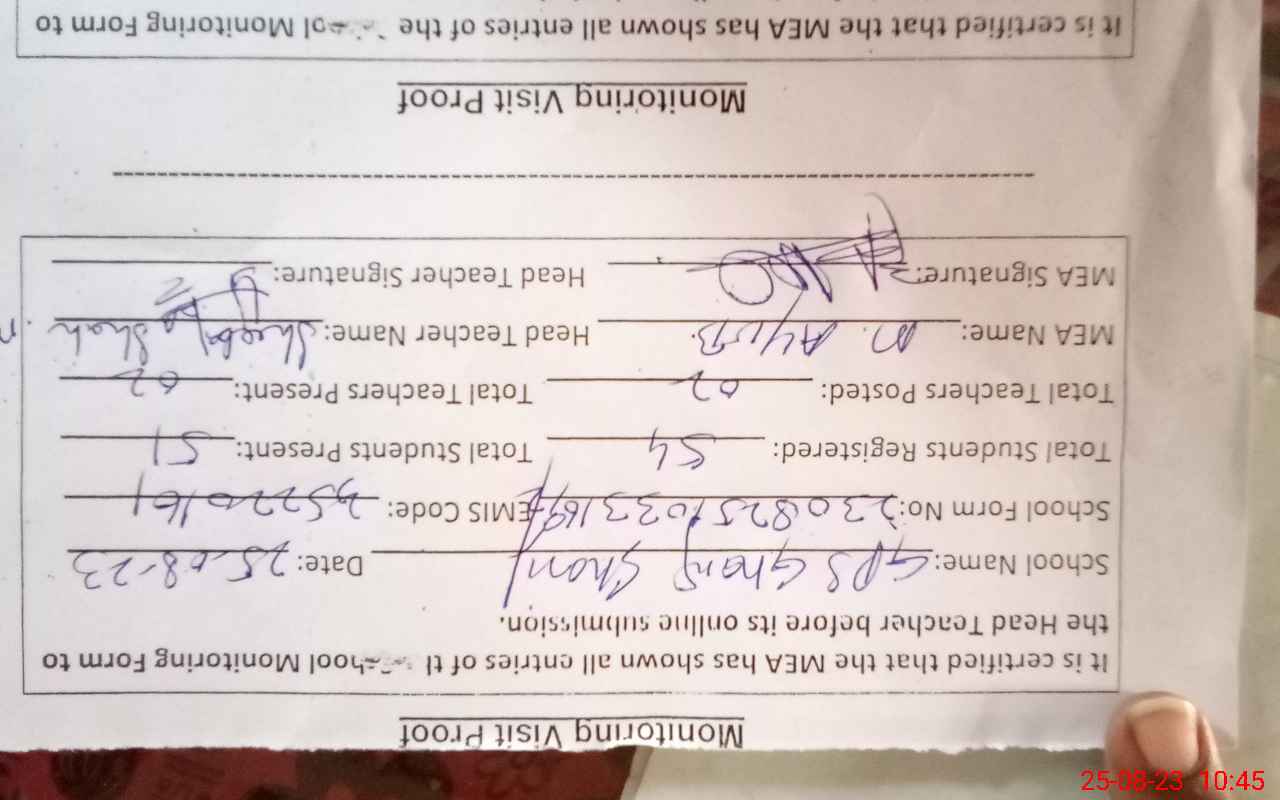 Monitoring Visit Proof
It is certified that the MEA has shown all entries of the School Monitoring Form to
the Head Teacher before its online submission.
School Name: GPS Date: 25-08-23
School Form No: EMIS Code: 35220161
Total Students Registered: 54 Total Students Present: 51
Total Teachers Posted: 02 Total Teachers Present: 02
MEA Name: M. Ayub Head Teacher Name: Shah
MEA Signature: Head Teacher Signature:
Monitoring Visit Proof
It is certified that the MEA has shown all entries of the School Monitoring Form to
25-08-23 10:45